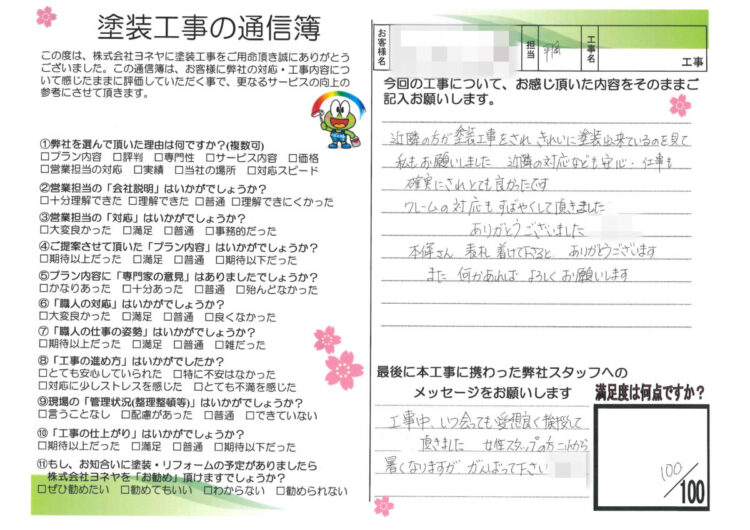 塗装工事の通信簿
この度は、株式会社ヨネヤに塗装工事をご用命頂き誠にありがとう
ございました。この通信簿は、お客様に弊社の対応・工事内容につ
いて感じたままに評価していただく事で、更なるサービスの向上の
参考にさせて頂きます。
①弊社を選んで頂いた理由は何ですか?(複数可)
□プラン内容 □評判 □専門性 □サービス内容 □価格
□営業担当の対応 □実績 □当社の場所 □対応スピード
②営業担当の「会社説明」はいかがでしょうか?
□十分理解できた □理解できた □普通 □理解できにくかった
③営業担当の「対応」はいかがでしょうか?
□大変良かった □満足 □普通 □事務的だった
④ご提案させて頂いた「プラン内容」はいかがでしょうか?
□期待以上だった □満足 □普通 □期待以下だった
⑤プラン内容に「専門家の意見」はありましたでしょうか?
□かなりあった □十分あった □普通 □殆んどなかった
⑥「職人の対応」はいかがでしょうか?
□大変良かった □満足 □普通 □良くなかった
⑦「職人の仕事の姿勢」はいかがでしょうか?
□期待以上だった □満足 □普通 □雑だった
⑧「工事の進め方」はいかがでしたか?
□とても安心していられた □特に不安はなかった
□対応に少しストレスを感じた □とても不満を感じた
⑨現場の「管理状況(整理整頓等)」はいかがでしょうか?
□言うことなし □配慮があった □普通 □できていない
⑩「工事の仕上がり」はいかがでしょうか?
□期待以上だった □満足 □普通 □期待以下だった
⑪もし、お知合いに塗装・リフォームの予定がありましたら
株式会社ヨネヤを「お勧め」頂けますでしょうか?
□ぜひ勧めたい □勧めてもいい □わからない □勧められない
お客様名
担当
工事名
工事
今回の工事について、お感じ頂いた内容をそのままご
記入お願いします。
近隣の方が塗装工事をされ きれいに塗装出来ているのを見て
私もお願いしました 近隣の対応なども安心・仕事も
確実にされとても良かったです
クレームの対応もすばやくして頂きました
ありがとうございました
ありがとうございます
また 何かあれば よろしくお願いします
最後に本工事に携わった弊社スタッフへの
メッセージをお願いします
工事中、いつ会っても愛想良く挨拶して
頂きました 女性スタッフの方 これから
暑くなりますが がんばって下さい
満足度は何点ですか?
100
/100